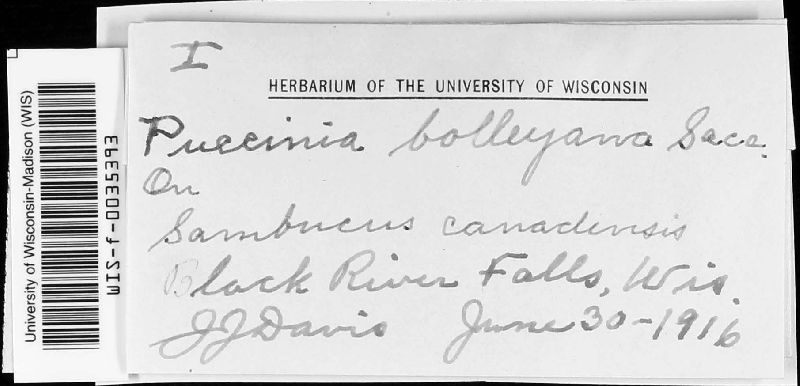 I
HERBARIUM OF THE UNIVERSITY OF WISCONSIN
Puccinia bolleyana Sacc.
On
Sambucus canadensis
Black River Falls, Wis.
JJDavis June 30-1916
University of Wisconsin-Madison (WIS)
WIS-f-0035393